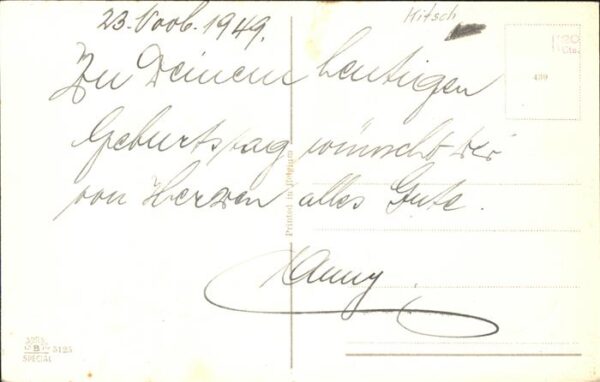 23. Novb. 1949.
Kitsch
Zu Deinem heutigen
Geburtstag wünscht Dir
von Herzen alles Gute.
Hanny.
Printed in Belgium
439
B
5125
SPECIAL